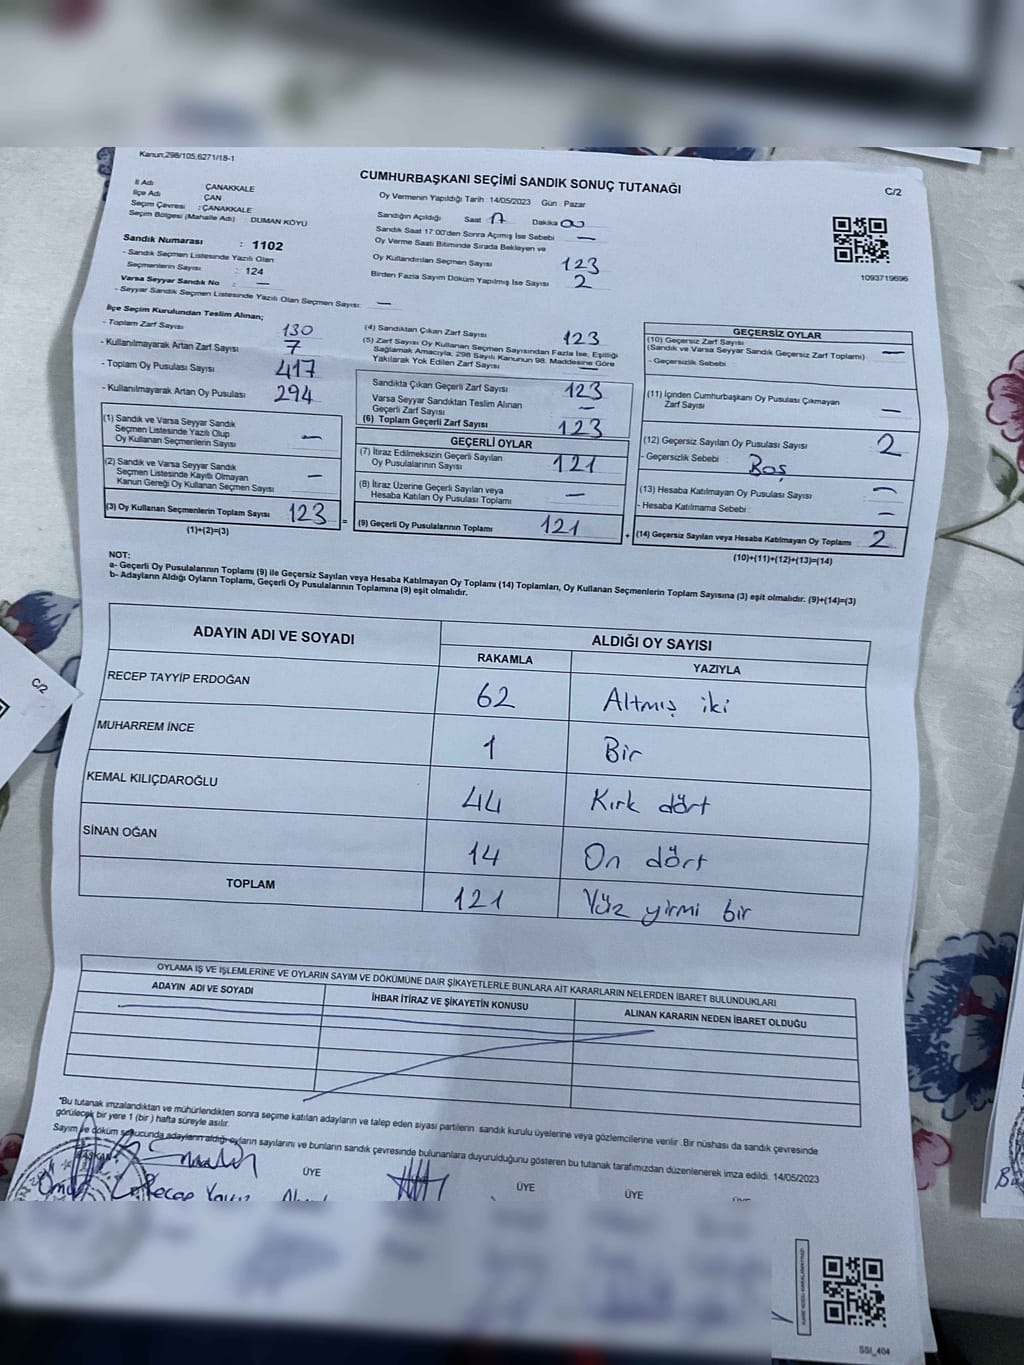 Kanun;298/105;6271/18-1
CUMHURBAŞKANI SEÇİMİ SANDIK SONUÇ TUTANAĞI
C/2
İl Adı ÇANAKKALE
İlçe Adı ÇAN
Seçim Çevresi : ÇANAKKALE
Seçim Bölgesi (Mahalle Adı) : DUMAN KÖYÜ
Oy Vermenin Yapıldığı Tarih 14/05/2023 Gün : Pazar
Sandığın Açıldığı Saat 17 Dakika 00
Sandık Saat 17:00'den Sonra Açımış İse Sebebi —
Oy Verme Saati Bitiminde Sırada Bekleyen ve
Oy Kullandırılan Seçmen Sayısı 123
Birden Fazla Sayım Döküm Yapılmış İse Sayısı 2
1093719696
Sandık Numarası : 1102
- Sandık Seçmen Listesinde Yazılı Olan
Seçmenlerin Sayısı : 124
Varsa Seyyar Sandık No : —
- Seyyar Sandık Seçmen Listesinde Yazılı Olan Seçmen Sayısı: —
İlçe Seçim Kurulundan Teslim Alınan;
- Toplam Zarf Sayısı 130
- Kullanılmayarak Artan Zarf Sayısı 7
- Toplam Oy Pusulası Sayısı 417
- Kullanılmayarak Artan Oy Pusulası 294
(1) Sandık ve Varsa Seyyar Sandık
Seçmen Listesinde Yazılı Olup
Oy Kullanan Seçmenlerin Sayısı —
(2) Sandık ve Varsa Seyyar Sandık
Seçmen Listesinde Kayıtlı Olmayan
Kanun Gereği Oy Kullanan Seçmen Sayısı —
(3) Oy Kullanan Seçmenlerin Toplam Sayısı 123 =
(1)+(2)=(3)
(4) Sandıktan Çıkan Zarf Sayısı 123
(5) Zarf Sayısı Oy Kullanan Seçmen Sayısından Fazla İse, Eşitliği
Sağlamak Amacıyla, 298 Sayılı Kanunun 98. Maddesine Göre
Yakılarak Yok Edilen Zarf Sayısı —
Sandıkta Çıkan Geçerli Zarf Sayısı 123
Varsa Seyyar Sandıktan Teslim Alınan
Geçerli Zarf Sayısı —
(6) Toplam Geçerli Zarf Sayısı 123
GEÇERLİ OYLAR
(7) İtiraz Edilmeksizin Geçerli Sayılan
Oy Pusulalarının Sayısı 121
(8) İtiraz Üzerine Geçerli Sayılan veya
Hesaba Katılan Oy Pusulası Toplamı —
(9) Geçerli Oy Pusulalarının Toplamı 121 +
GEÇERSİZ OYLAR
(10) Geçersiz Zarf Sayısı
(Sandık ve Varsa Seyyar Sandık Geçersiz Zarf Toplamı) —
- Geçersizlik Sebebi
(11) İçinden Cumhurbaşkanı Oy Pusulası Çıkmayan
Zarf Sayısı —
(12) Geçersiz Sayılan Oy Pusulası Sayısı 2
- Geçersizlik Sebebi : Boş
(13) Hesaba Katılmayan Oy Pusulası Sayısı —
- Hesaba Katılmama Sebebi : —
(14) Geçersiz Sayılan veya Hesaba Katılmayan Oy Toplamı 2
(10)+(11)+(12)+(13)=(14)
NOT:
a- Geçerli Oy Pusulalarının Toplamı (9) ile Geçersiz Sayılan veya Hesaba Katılmayan Oy Toplamı (14) Toplamları, Oy Kullanan Seçmenlerin Toplam Sayısına (3) eşit olmalıdır. (9)+(14)=(3)
b- Adayların Aldığı Oyların Toplamı, Geçerli Oy Pusulalarının Toplamına (9) eşit olmalıdır.
ADAYIN ADI VE SOYADI ALDIĞI OY SAYISI
RAKAMLA YAZIYLA
RECEP TAYYİP ERDOĞAN 62 Altmış iki
MUHARREM İNCE 1 Bir
KEMAL KILIÇDAROĞLU 44 Kırk dört
SİNAN OĞAN 14 On dört
TOPLAM 121 Yüz yirmi bir
OYLAMA İŞ VE İŞLEMLERİNE VE OYLARIN SAYIM VE DÖKÜMÜNE DAİR ŞİKAYETLERLE BUNLARA AİT KARARLARIN NELERDEN İBARET BULUNDUKLARI
ADAYIN ADI VE SOYADI İHBAR İTİRAZ VE ŞİKAYETİN KONUSU ALINAN KARARIN NEDEN İBARET OLDUĞU
"Bu tutanak imzalandıktan ve mühürlendikten sonra seçime katılan adayların ve talep eden siyasi partilerin sandık kurulu üyelerine veya gözlemcilerine verilir. Bir nüshası da sandık çevresinde
görülecek bir yere 1 (bir ) hafta süreyle asılır.
Sayım ve döküm sonucunda adayların aldığı oyların sayılarını ve bunların sandık çevresinde bulunanlara duyurulduğunu gösteren bu tutanak tarafımızdan düzenlenerek imza edildi. 14/05/2023
BAŞKAN ÜYE ÜYE ÜYE
Recep Yavuz
C/2
SSI_404